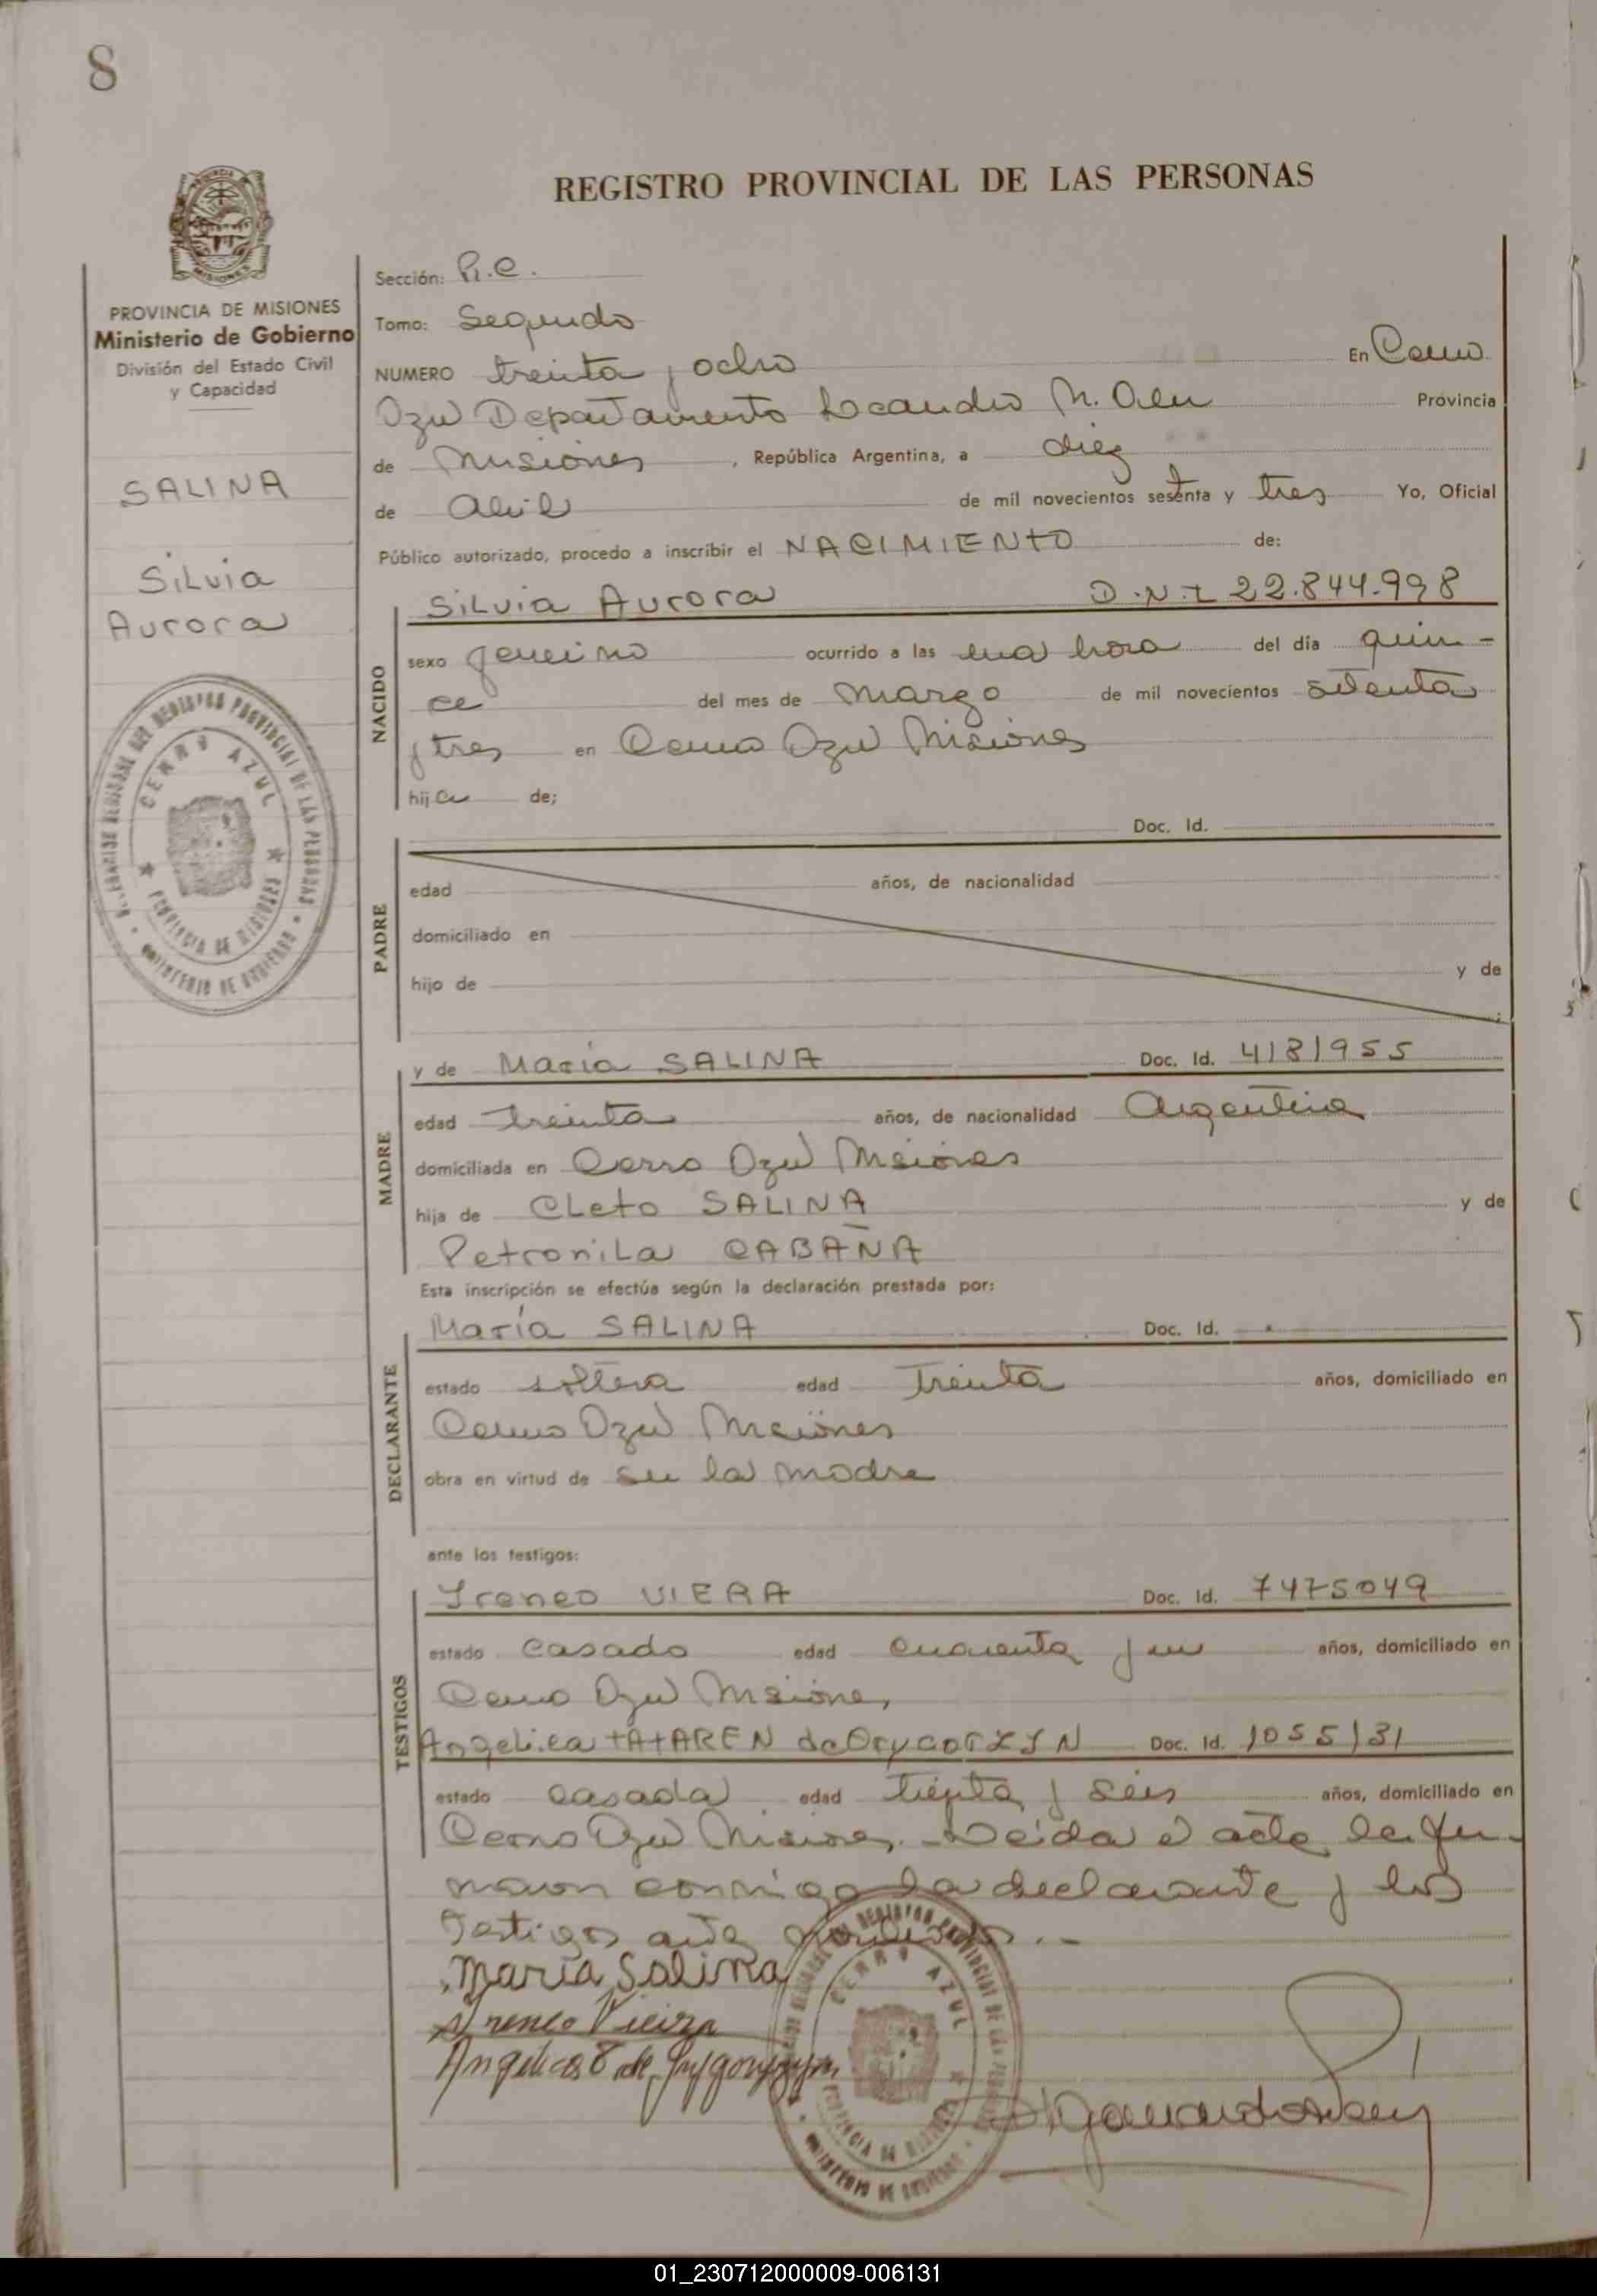 8
REGISTRO PROVINCIAL DE LAS PERSONAS
PROVINCIA DE MISIONES
Ministerio de Gobierno
División del Estado Civil
y Capacidad
SALINA
Silvia
Aurora
CERRO AZUL
PROVINCIA DE MISIONES
MINISTERIO DE GOBIERNO
Sección: R.C.
Tomo: Segundo
NUMERO treinta y ocho En Cerro
Azul Departamento Leandro N. Alem Provincia
de Misiones, República Argentina, a diez
de Abril de mil novecientos setenta y tres Yo, Oficial
Público autorizado, procedo a inscribir el NACIMIENTO de:
NACIDO
Silvia Aurora D.N.I 22.844.998
sexo femenino ocurrido a las una hora del día quin-
ce del mes de Marzo de mil novecientos setenta
y tres en Cerro Azul Misiones
hija de;
PADRE
Doc. Id.
edad años, de nacionalidad
domiciliado en
hijo de y de
MADRE
y de María SALINA Doc. Id. 4181955
edad treinta años, de nacionalidad Argentina
domiciliada en Cerro Azul Misiones
hija de Cleto SALINA y de
Petronila CABAÑA
Esta inscripción se efectúa según la declaración prestada por:
DECLARANTE
María SALINA Doc. Id.
estado soltera edad Treinta años, domiciliado en
Cerro Azul Misiones
obra en virtud de ser la madre
ante los testigos:
TESTIGOS
Ireneo VIERA Doc. Id. 7475049
estado casado edad cuarenta y un años, domiciliado en
Cerro Azul Misiones
Angelica TATAREN de Doc. Id. 1055131
estado casada edad treinta y seis años, domiciliado en
Cerro Azul Misiones. Leida el acta la fir-
maron conmigo la declarante y los
Testigos ante
María Salina
Ireneo Vieira
Angelica T de
CERRO AZUL
PROVINCIA DE MISIONES
MINISTERIO DE GOBIERNO
01_230712000009-006131